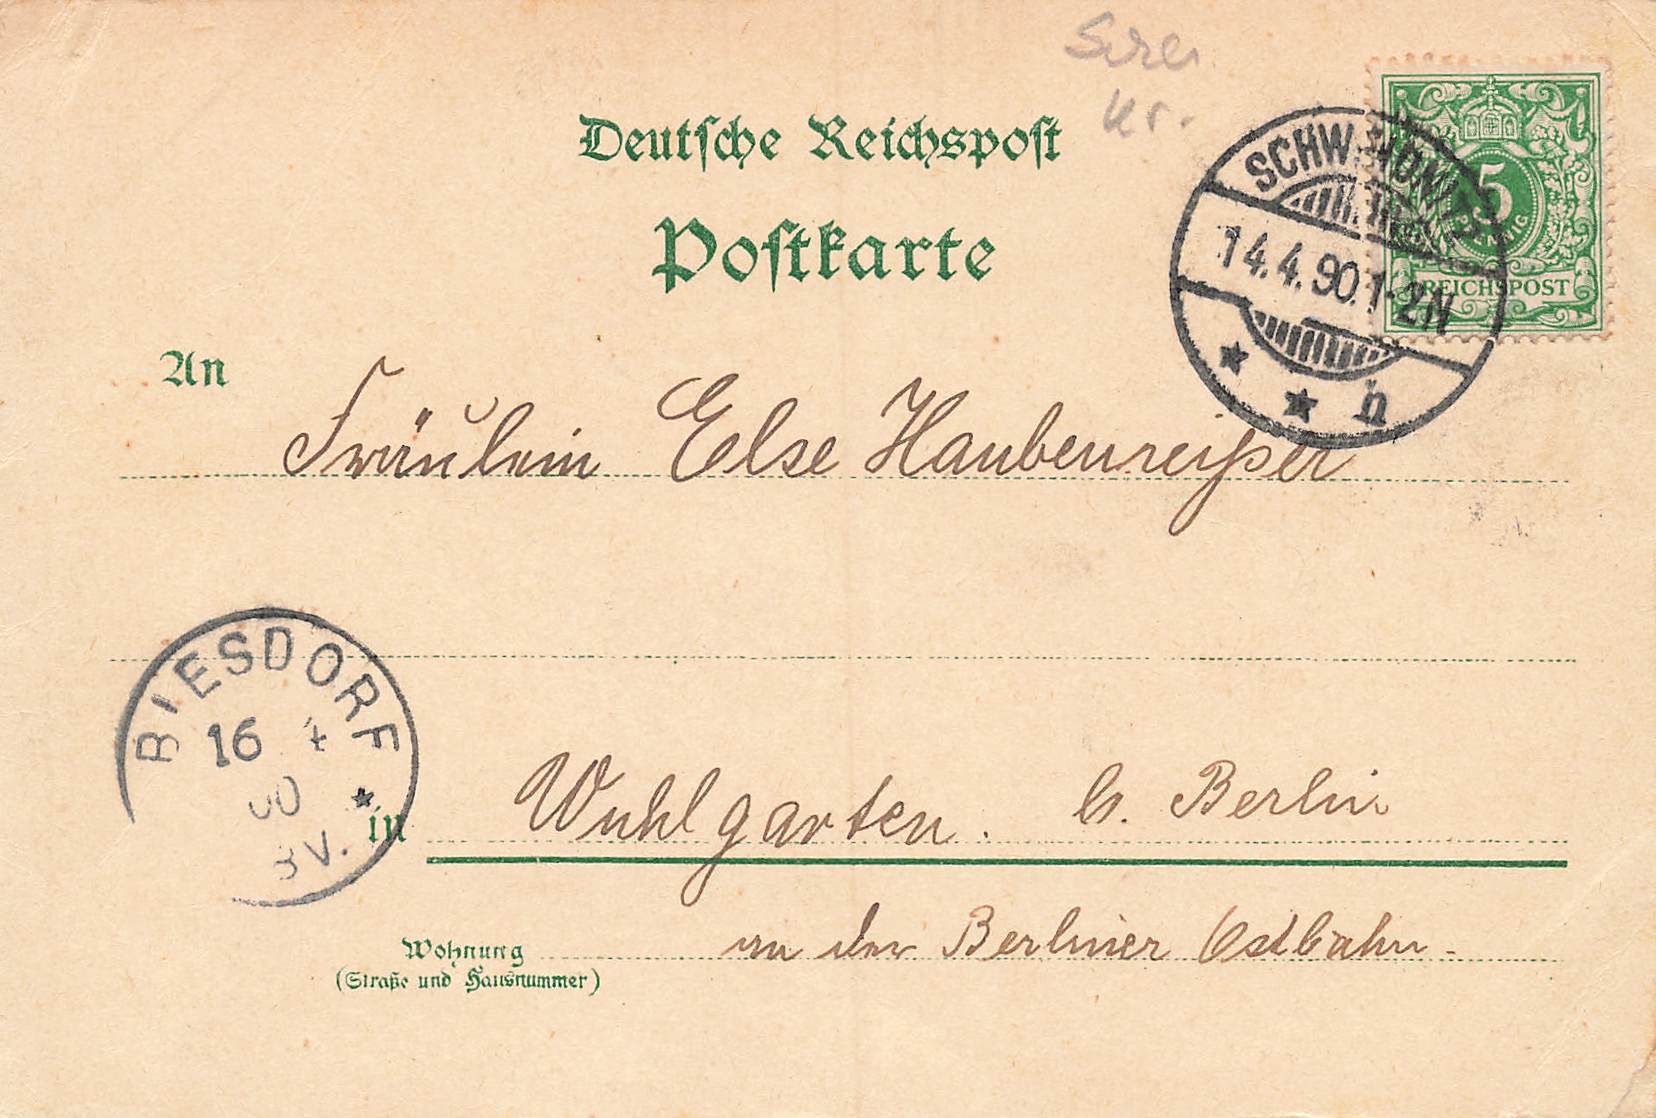 Deutsche Reichspost
Postkarte
5
PFENNIG
REICHSPOST
14.4.90.1-2N
h
An
Fräulein Else Haubenreißer
BIESDORF
16 4
00
8V.
in
Wuhlgarten. b. Berlin
Wohnung
(Straße und Hausnummer)
an der Berliner Ostbahn.